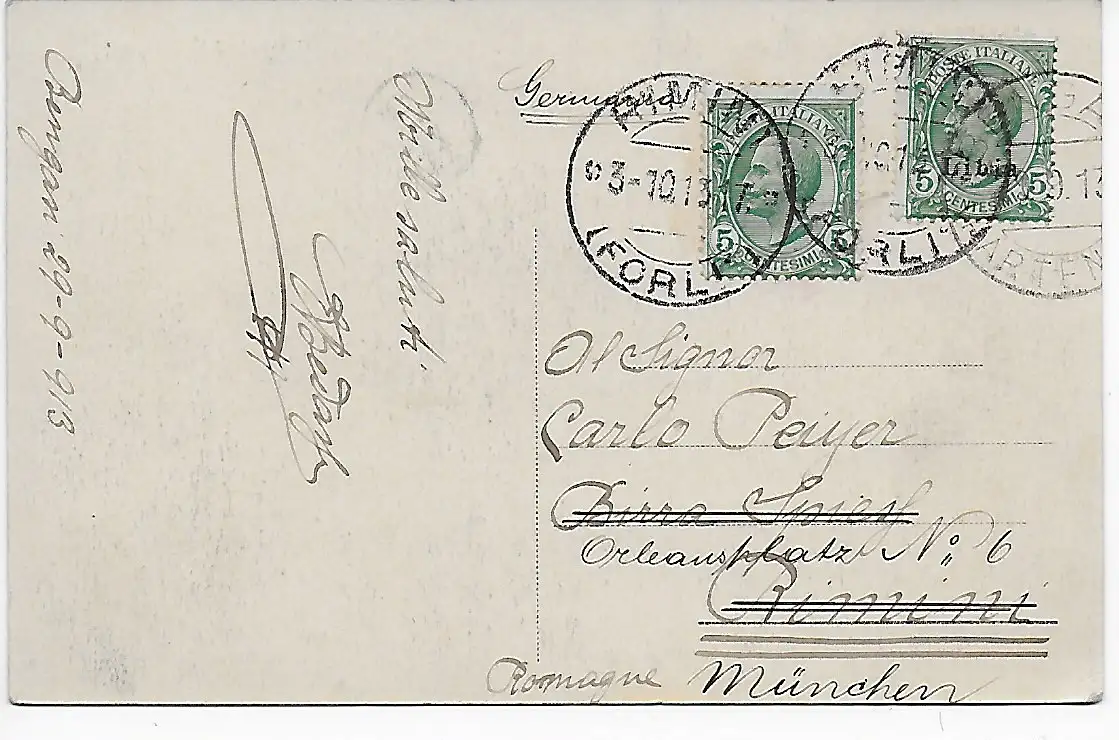 Bengasi 29-9-913
Mille saluti.
Germania
RIMINI
3-10.13
(FORLI)
POSTE ITALIANE
5 5
CENTESIMI
RIMINI
10.13
(FORLI)
POSTE ITALIANE
Libia
5 5
CENTESIMI
Al Signor
Carlo Peiyer
Birra Spiess
Orleansplatz No: 6
Rimini
Romagne München